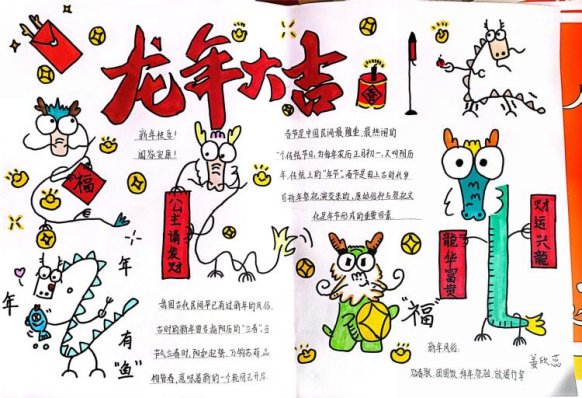 龙年大吉
春
福
新年快乐!
阖家安康!
公主请发财
春节是中国民间最隆重、最热闹的
一个传统节日,为每年农历正月初一,又叫阴历
年,传统上的"年节"。春节是由上古时代岁
首祈年祭祀演变来的,原始信仰与祭祀文
化是年节形成的重要因素
龍华富贵
财运兴龍
年
年
有
"鱼"
我国古代民间早已有过新年的风俗。
古时的新年曾专指阴历的"立春"。当
节气立春时,阳和起蛰,万物
意味着新的一个轮回已开启。
"福"
新年风俗:
贴春联、团圆饭、拜年、祭祖、放爆竹等
姜欣蕊